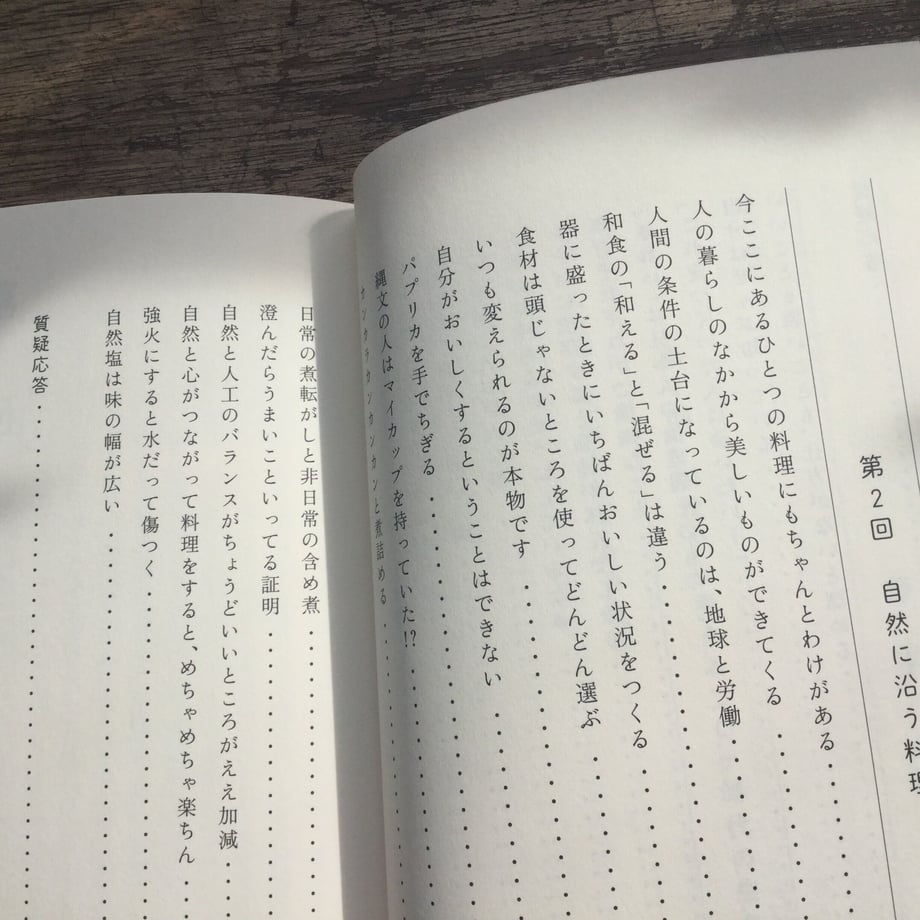 第2回 自然に沿う料理
今ここにあるひとつの料理にもちゃんとわけがある
人の暮らしのなかから美しいものができてくる
人間の条件の土台になっているのは、地球と労働
和食の「和える」と「混ぜる」は違う
器に盛ったときにいちばんおいしい状況をつくる
食材は頭じゃないところを使ってどんどん選ぶ
いつも変えられるのが本物です
自分がおいしくするということはできない
パプリカを手でちぎる
縄文の人はマイカップを持っていた!?
カンカンと煮詰める
日常の煮転がしと非日常の含め煮
澄んだらうまいこといってる証明
自然と人工のバランスがちょうどいいところがええ加減
自然と心がつながって料理をすると、めちゃめちゃ楽ちん
強火にすると水だって傷つく
自然塩は味の幅が広い
質疑応答